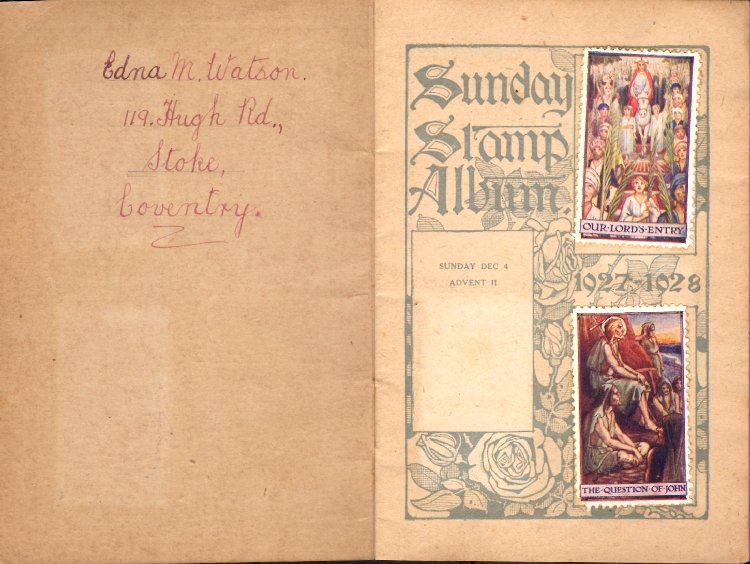 Edna M. Watson.
119. Hugh Rd.,
Stoke,
Coventry.
Sunday
Stamp
Album.
OUR·LORD'S·ENTRY
SUNDAY DEC 4
ADVENT II
1927-1928
THE·QUESTION·OF·JOHN